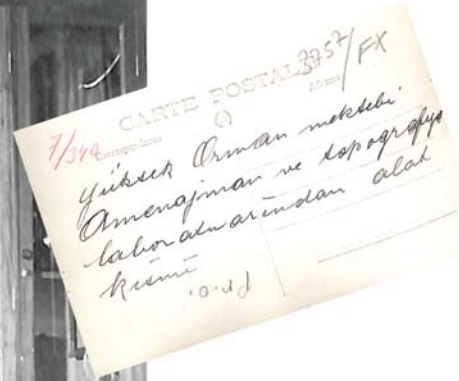 CARTE POSTALE
7/340
Correspondance
Adresse
/FX
Yüksek Orman mektebi
Amenajman ve topografya
laboratuarından alat
kısmı